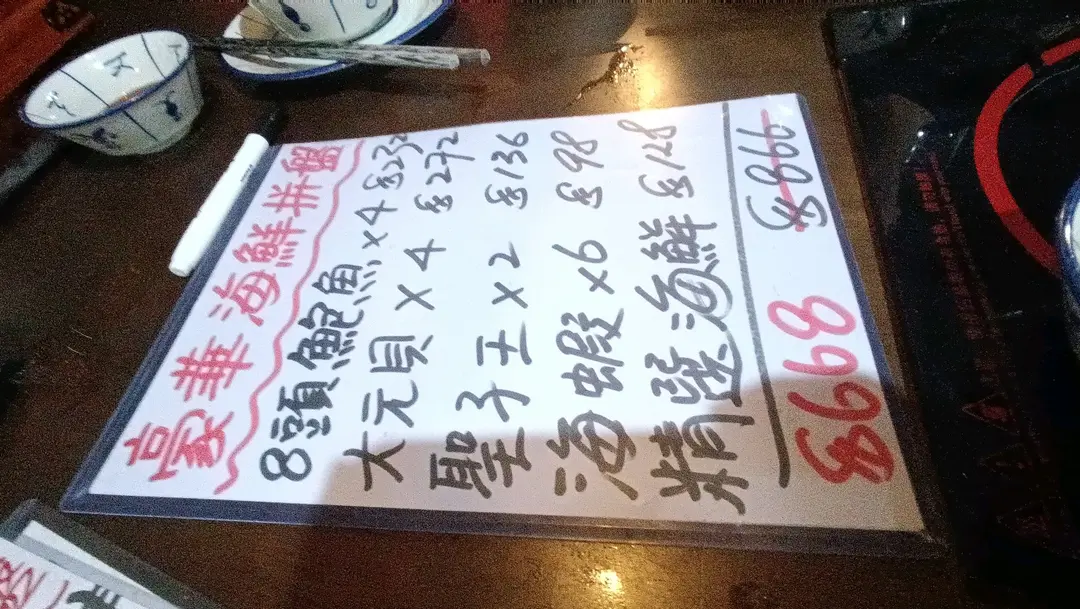 豪華海鮮拼盤
8頭鮑魚x4 $232
大元貝x4 $272
聖子王x2 $136
海蝦x6 $98
精選海鮮 $128
$866
$668